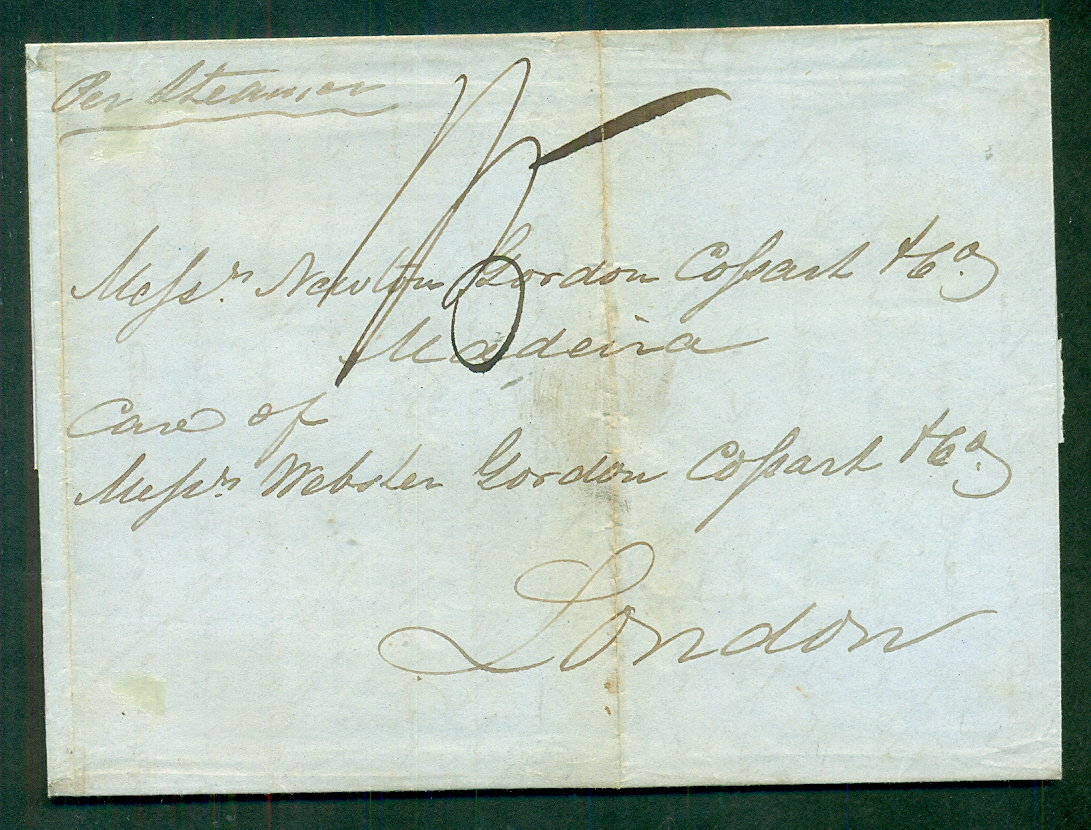 Per Steamer
1/5
Messrs. Newton Gordon Cossart & Co.
Madeira
Care of
Messrs Webster Gordon Cossart & Co.
London